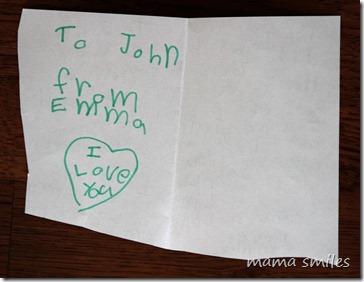 To John
from
Emma
I
Love
You
mama smiles